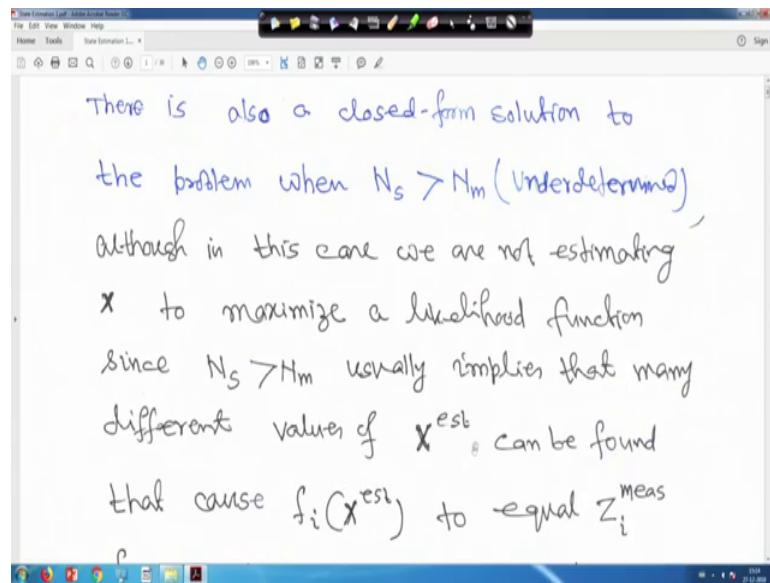 State Estimation 1.pdf - Adobe Acrobat Reader DC
File Edit View Window Help
Home Tools State Estimation 1... × Sign
There is also a closed-form solution to
the problem when Ns > Nm (Underdetermined),
although in this case we are not estimating
x to maximize a likelihood function
since Ns > Nm usually implies that many
different values of x^est can be found
that cause fi(x^est) to equal Zi^meas